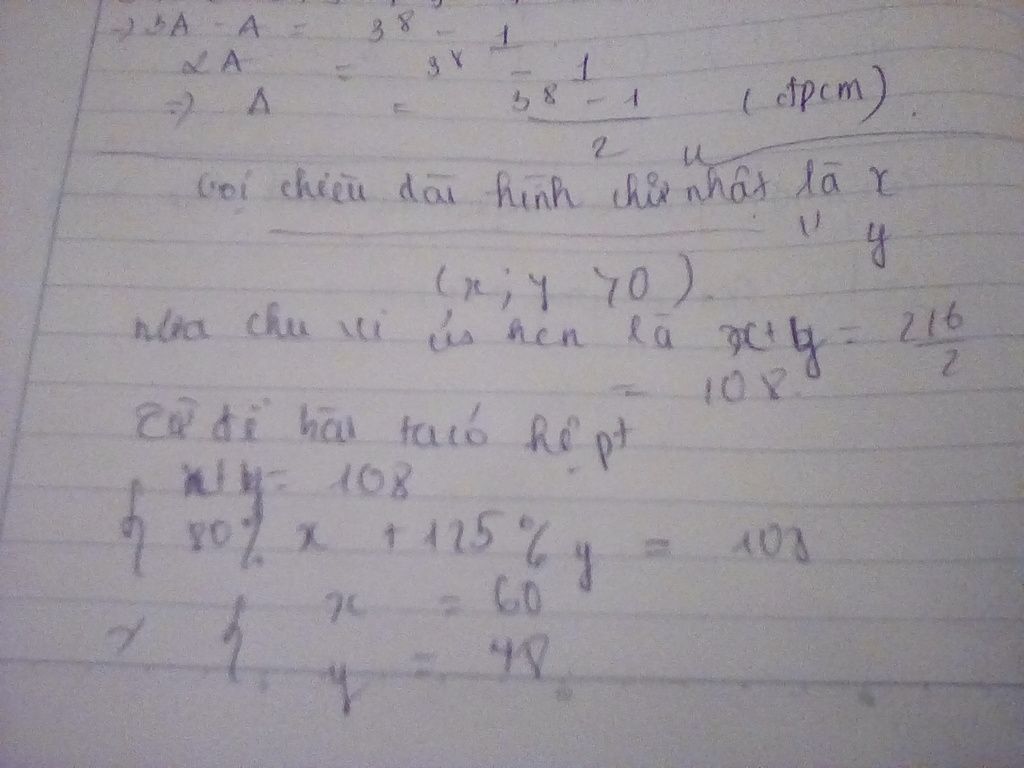 => 3A - A = 3^8 - 1
2A = 3^8 - 1
=> A = \frac{3^8 - 1}{2} (đpcm).
Gọi chiều dài hình chữ nhật là x
" y
(x; y > 0).
nửa chu vi hcn là x + y = \frac{216}{2}
= 108.
Từ đề bài ta có hệ pt
{ x + y = 108
80% x + 125% y = 108
=> { x = 60
y = 48.